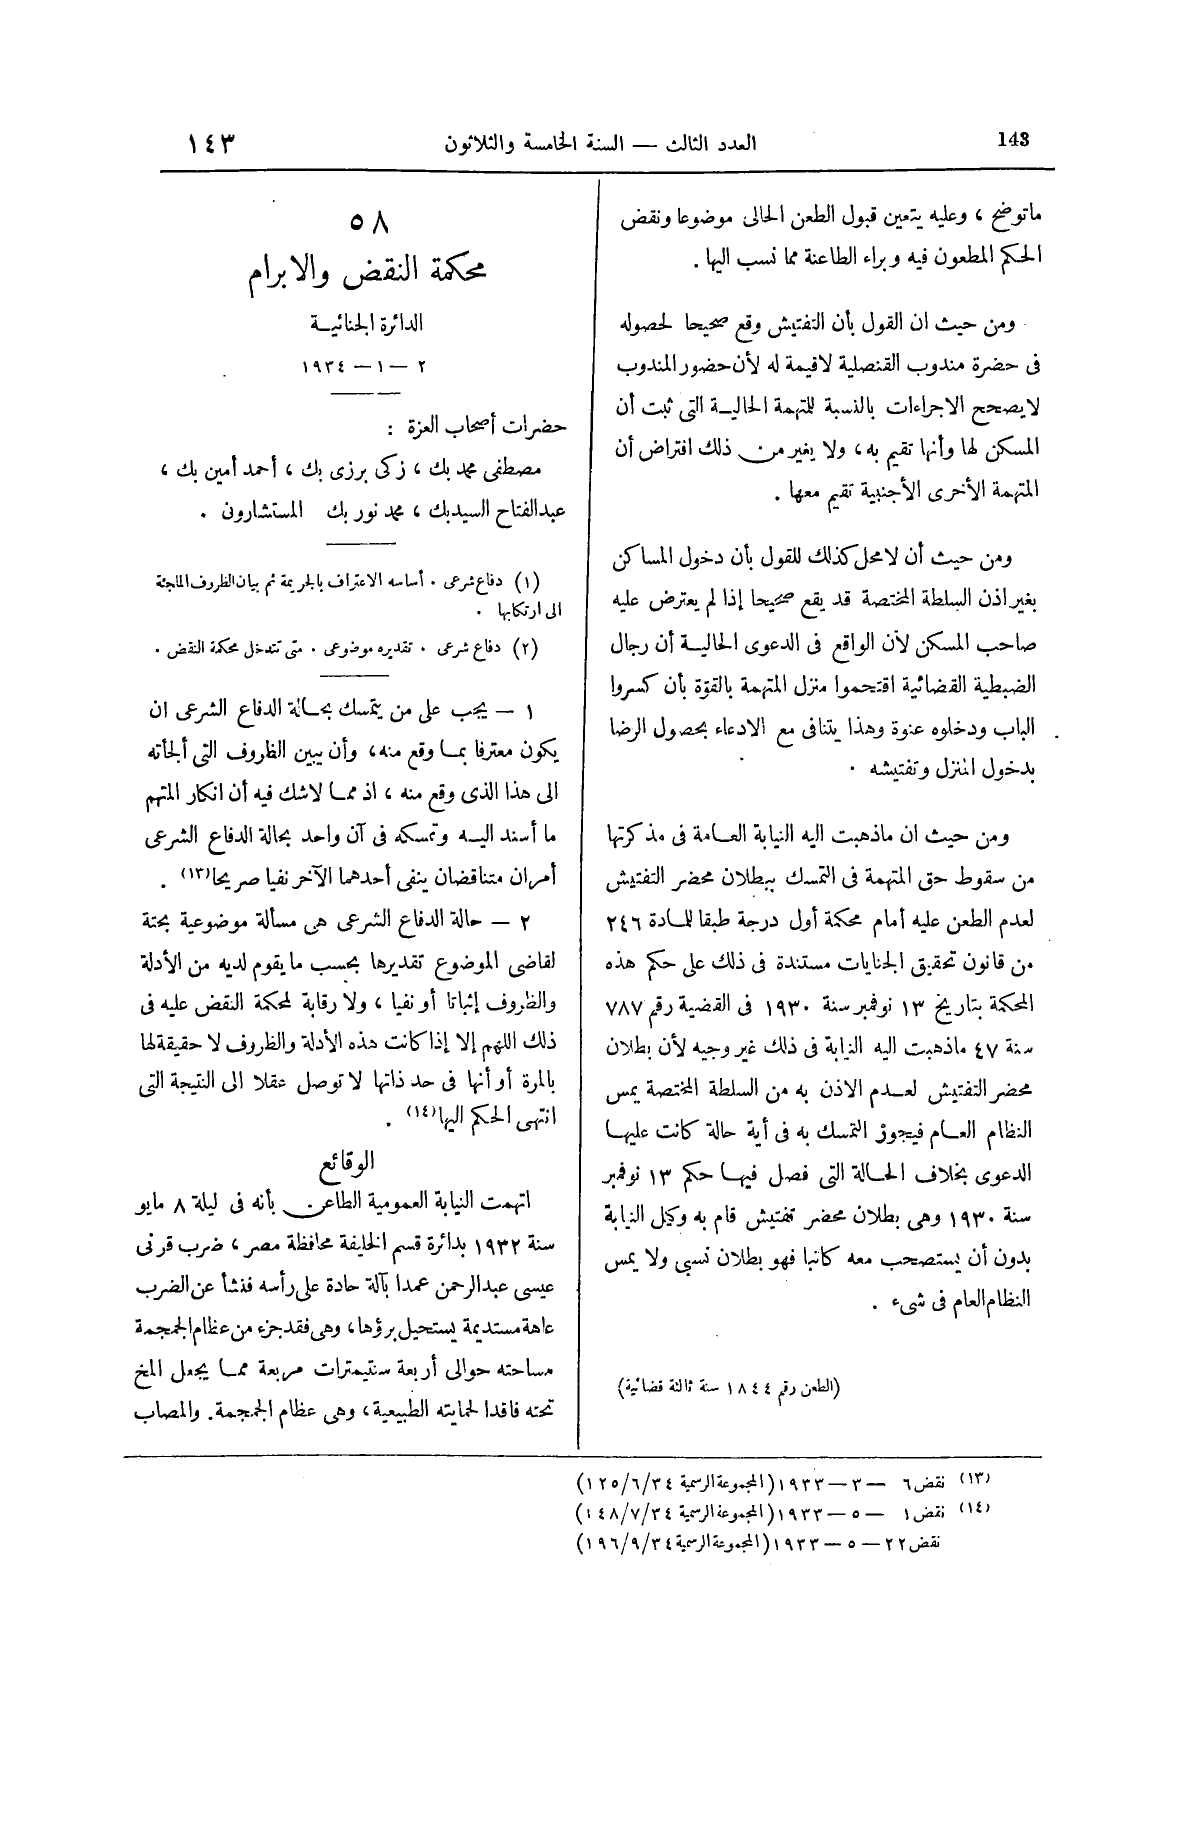 143
العدد الثالث — السنة الخامسة والثلاثون
١٤٣
ماتوضح ، وعليه يتعين قبول الطعن الحالى موضوعا ونقض
الحكم المطعون فيه وبراء الطاعنة مما نسب اليها .
ومن حيث ان القول بأن التفتيش وقع صحيحا لحصوله
فى حضرة مندوب القنصلية لاقيمة له لأن حضور المندوب
لايصحح الاجراءات بالنسبة للمتهمة الحالية التى ثبت أن
المسكن لها وأنها تقيم به ، ولا يغير من ذلك افتراض أن
المتهمة الأخرى الأجنبية تقيم معها .
ومن حيث أن لامحل كذلك للقول بأن دخول المساكن
بغير اذن السلطة المختصة قد يقع صحيحا إذا لم يعترض عليه
صاحب المسكن لأن الواقع فى الدعوى الحالية أن رجال
الضبطية القضائية اقتحموا منزل المتهمة بالقوة بأن كسروا
الباب ودخلوه عنوة وهذا يتنافى مع الادعاء بحصول الرضا
بدخول المنزل وتفتيشه .
ومن حيث ان ماذهبت اليه النيابة العامة فى مذكرتها
من سقوط حق المتهمة فى التمسك ببطلان محضر التفتيش
لعدم الطعن عليه أمام محكمة أول درجة طبقا للمادة ٢٤٦
من قانون تحقيق الجنايات مستندة فى ذلك على حكم هذه
المحكمة بتاريخ ١٣ نوفمبر سنة ١٩٣٠ فى القضية رقم ٧٨٧
سنة ٤٧ ماذهبت اليه النيابة فى ذلك غير وجيه لأن بطلان
محضر التفتيش لعدم الاذن به من السلطة المختصة يمس
النظام العام فيجوز التمسك به فى أية حالة كانت عليها
الدعوى بخلاف الحالة التى فصل فيها حكم ١٣ نوفمبر
سنة ١٩٣٠ وهى بطلان محضر تفتيش قام به وكيل النيابة
بدون أن يستصحب معه كاتبا فهو بطلان نسبي ولا يمس
النظام العام فى شىء .
(الطعن رقم ١٨٤٤ سنة ثالثة قضائية)
٥٨
محكمة النقض والابرام
الدائرة الجنائية
٢ — ١ — ١٩٣٤
حضرات أصحاب العزة :
مصطفى محمد بك ، زكى برزى بك ، أحمد أمين بك ،
عبد الفتاح السيد بك ، محمد نور بك المستشارون .
(١) دفاع شرعى . أساسه الاعتراف بالجريمة ثم بيان الظروف الملجئة
الى ارتكابها .
(٢) دفاع شرعى . تقديره موضوعى . متى تتدخل محكمة النقض .
١ — يجب على من يتمسك بحالة الدفاع الشرعى ان
يكون معترفا بما وقع منه ، وأن يبين الظروف التى ألجأته
الى هذا الذى وقع منه ، اذ مما لاشك فيه أن انكار المتهم
ما أسند اليه وتمسكه فى آن واحد بحالة الدفاع الشرعى
أمران متناقضان ينفى أحدهما الآخر نفيا صريحا(١٣) .
٢ — حالة الدفاع الشرعى هى مسألة موضوعية بحتة
لقاضى الموضوع تقديرها بحسب مايقوم لديه من الأدلة
والظروف إثباتا أو نفيا ، ولا رقابة لمحكمة النقض عليه فى
ذلك اللهم إلا إذا كانت هذه الأدلة والظروف لا حقيقة لها
بالمرة أو أنها فى حد ذاتها لا توصل عقلا الى النتيجة التى
انتهى الحكم اليها(١٤) .
الوقائع
اتهمت النيابة العمومية الطاعن بأنه فى ليلة ٨ مايو
سنة ١٩٣٢ بدائرة قسم الخليفة محافظة مصر ، ضرب قرنى
عيسى عبد الرحمن عمدا بآلة حادة على رأسه فنشأ عن الضرب
عاهة مستديمة يستحيل برؤها ، وهى فقد جزء من عظام الجمجمة
مساحته حوالى أربعة سنتيمترات مربعة مما يجعل المخ
تحته فاقدا لحمايته الطبيعية ، وهى عظام الجمجمة. والمصاب
(١٣) نقض ٦ — ٣ — ١٩٣٣ (المجموعة الرسمية ١٢٥/٦/٣٤)
(١٤) نقض ١ — ٥ — ١٩٣٣ (المجموعة الرسمية ١٤٨/٧/٣٤)
نقض ٢٢ — ٥ — ١٩٣٣ (المجموعة الرسمية ١٩٦/٩/٣٤)